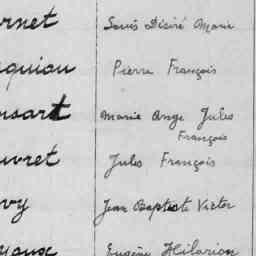 rnet Louis Désiré Marie
quiau Pierre François
nsart Marie Ange Jules
François
uvret Jules François
vy Jean Baptiste Victor
yaux Eugène Hilarion